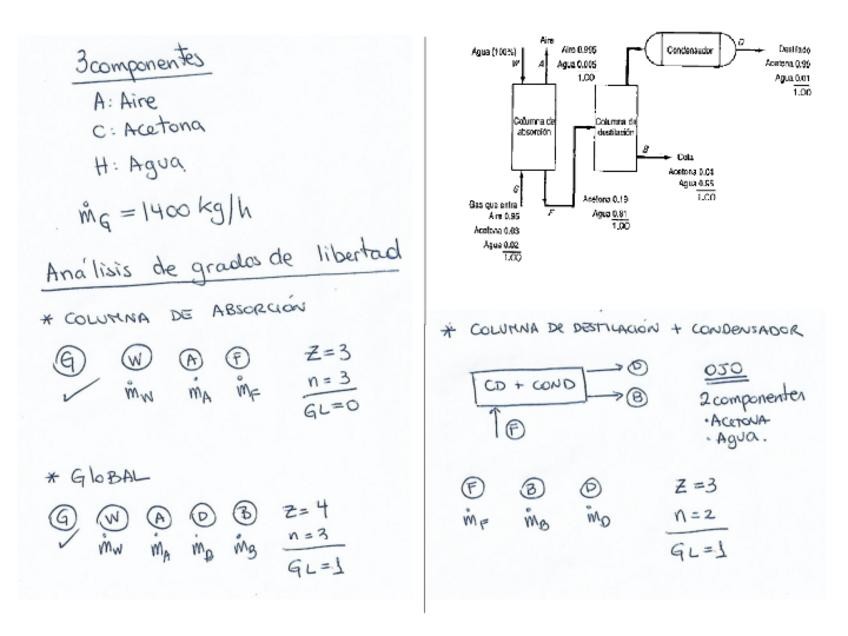 3 componentes
A: Aire
C: Acetona
H: Agua
ṁG = 1400 kg/h
Análisis de grados de libertad
* COLUMNA DE ABSORCIÓN
G W A F
✓ ṁW ṁA ṁF
Z = 3
n = 3
GL = 0
* GLOBAL
G W A D B
✓ ṁW ṁA ṁD ṁB
Z = 4
n = 3
GL = 1
Agua (100%)
W
Aire
A
Aire 0.995
Agua 0.005
1.00
Condensador
D
Destilado
Acetona 0.99
Agua 0.01
1.00
Columna de
absorción
Columna de
destilación
B
Cola
Acetona 0.04
Agua 0.96
1.00
G
Gas que entra
Aire 0.95
Acetona 0.03
Agua 0.02
1.00
F
Acetona 0.19
Agua 0.81
1.00
* COLUMNA DE DESTILACIÓN + CONDENSADOR
CD + COND
D
B
F
OJO
2 componentes
• ACETONA
• Agua.
F B D
ṁF ṁB ṁD
Z = 3
n = 2
GL = 1